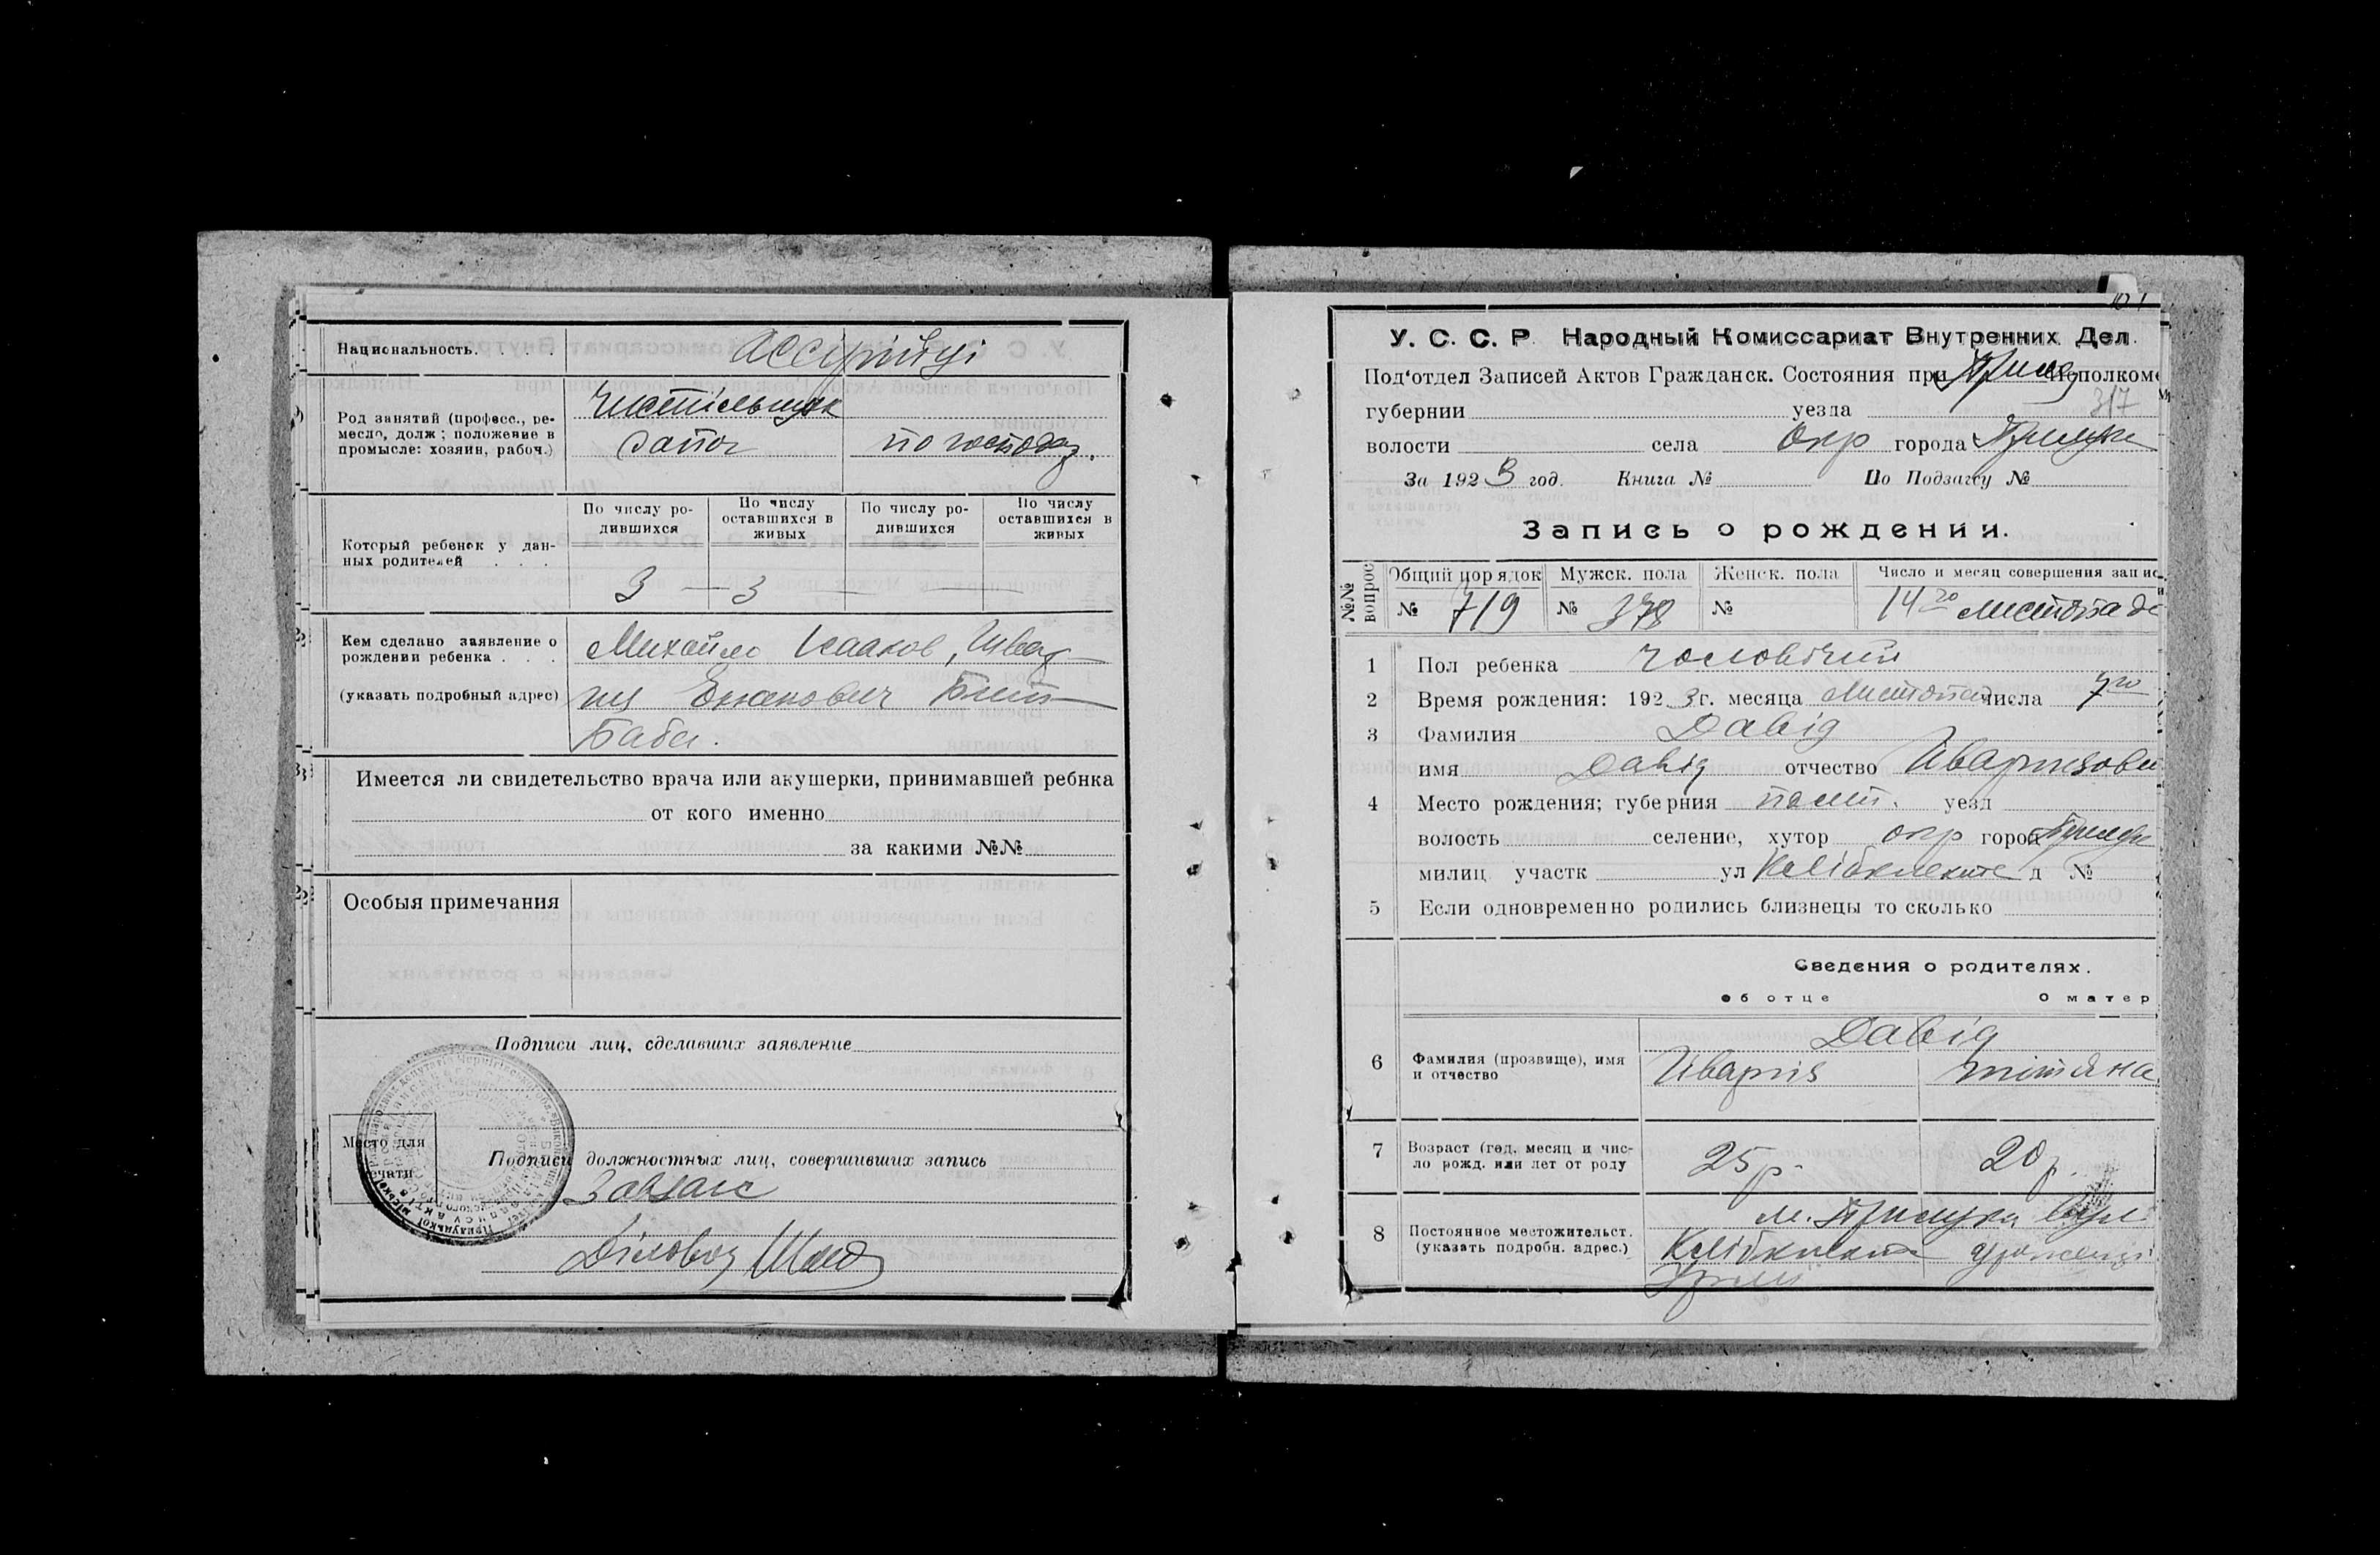 Национальность. . . . Ассірійці
Род занятий (професс., ре-
месло, долж; положение в
промысле: хозяин, рабоч.)
Чистільщик
сапог
по господ.
Который ребенок у дан-
ных родителей . . .
По числу ро-
дившихся
По числу
оставшихся в
живых
По числу ро-
дившихся
По числу
оставшихся в
живых
3 — 3 — —
Кем сделано заявление о
рождении ребенка . . .
(указать подробный адрес)
Михайло Исааков,
Бит-
Баба.
Имеется ли свидетельство врача или акушерки, принимавшей ребнка
от кого именно
за какими №№
Особыя примечания
Подписи лиц, сделавших заявление
Место для
печати
Подписи должностных лиц, совершивших запись
Завзагс
Діловод
У. С. С. Р. Народный Комиссариат Внутренних Дел.
Под‘отдел Записей Актов Гражданск. Состояния при Исполкоме
губернии уезда 317
волости села Окр города Прилуки
За 1923 год. Книга № По Подзагсу №
Запись о рождении.
№№
вопрос
Общий порядок
№ 719
Мужск. пола
№ 378
Женск. пола
№
Число и месяц совершения запис
14го листопада
1 Пол ребенка чоловічий
2 Время рождения: 1923г. месяца Листопад числа 7го
3 Фамилия Давід
имя Давід отчество
4 Место рождения; губерния полт. уезд
волость селение, хутор окр город Прилуки
милиц участк ул д №
5 Если одновременно родились близнецы то сколько
Сведения о родителях.
об отце
О матер
6 Фамилия (прозвище), имя
и отчество
Давід
7 Возраст (год, месяц и чис-
ло рожд. или лет от роду
25р.
20р.
8 Постоянное местожительст.
(указать подробн. адрес.)
м. Прилуки вул
уроженці